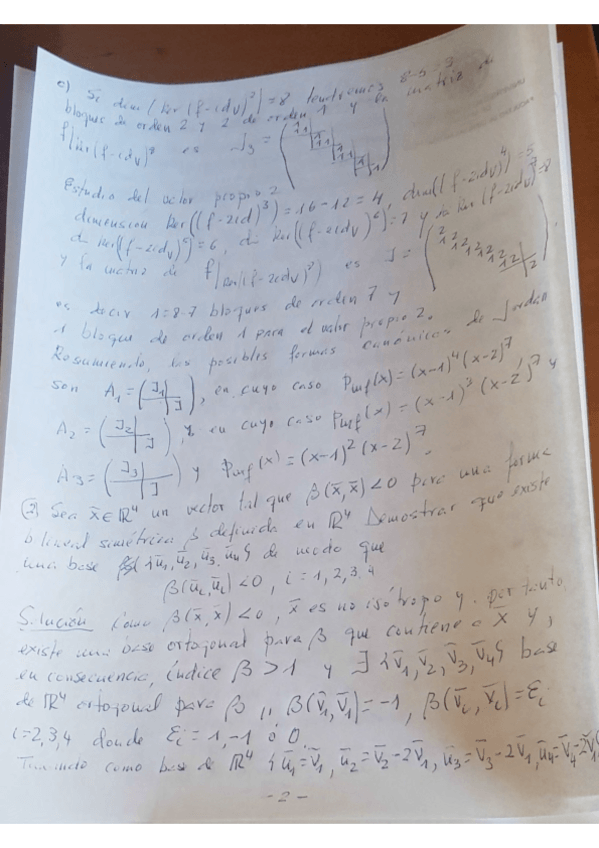 c) Si dim (Ker (f-idv)²) = 8 tendremos 8-5=3
bloques de orden 2 y 2 de orden 1 y la matriz de
f|Ker(f-idv)⁸ es J₃ =
Estudio del valor propio 2
dimensión Ker((f-2id)³) = 16-12=4, dim((f-2idv)⁴=5
di Ker((f-2idv)⁵=6, di Ker((f-2idv)⁶)=7 y di Ker (f-2idv)⁷=8
y la matriz de f| es J =
es decir 1=8-7 bloques de orden 7 y
1 bloque de orden 1 para el valor propio 2.
Resumiendo, las posibles formas canónicas de Jordan
son A₁ = (J₁ J), en cuyo caso Pmf(x) = (x-1)⁴(x-2)⁷,
A₂ = (J₂ J) y en cuyo caso Pmf(x) = (x-1)³(x-2)⁷ y
A₃ = (J₃ J) y Pmf(x) = (x-1)²(x-2)⁷.
② Sea x̄∈ℝ⁴ un vector tal que β(x̄,x̄)<0 para una forma
bilineal simétrica β definida en ℝ⁴ Demostrar que existe
una base {ū₁,ū₂,ū₃,ū₄} de modo que
β(ūᵢ,ūᵢ)<0, i=1,2,3,4
Solución Como β(x̄,x̄)<0, x̄ es no isótropo y por tanto
existe una base ortogonal para β que contiene a x̄ y,
en consecuencia, índice β > 1 y ∃ {v̄₁,v̄₂,v̄₃,v̄₄} base
de ℝ⁴ ortogonal para β ,, β(v̄₁,v̄₁)=-1, β(v̄ᵢ,v̄ᵢ)=εᵢ
i=2,3,4 donde εᵢ=1,-1 ó 0.
Tomando como base de ℝ⁴ {ū₁=v̄₁, ū₂=v̄₂-2v̄₁, ū₃=v̄₃-2v̄₁, ū₄=v̄₄-2v̄₁}
-2-